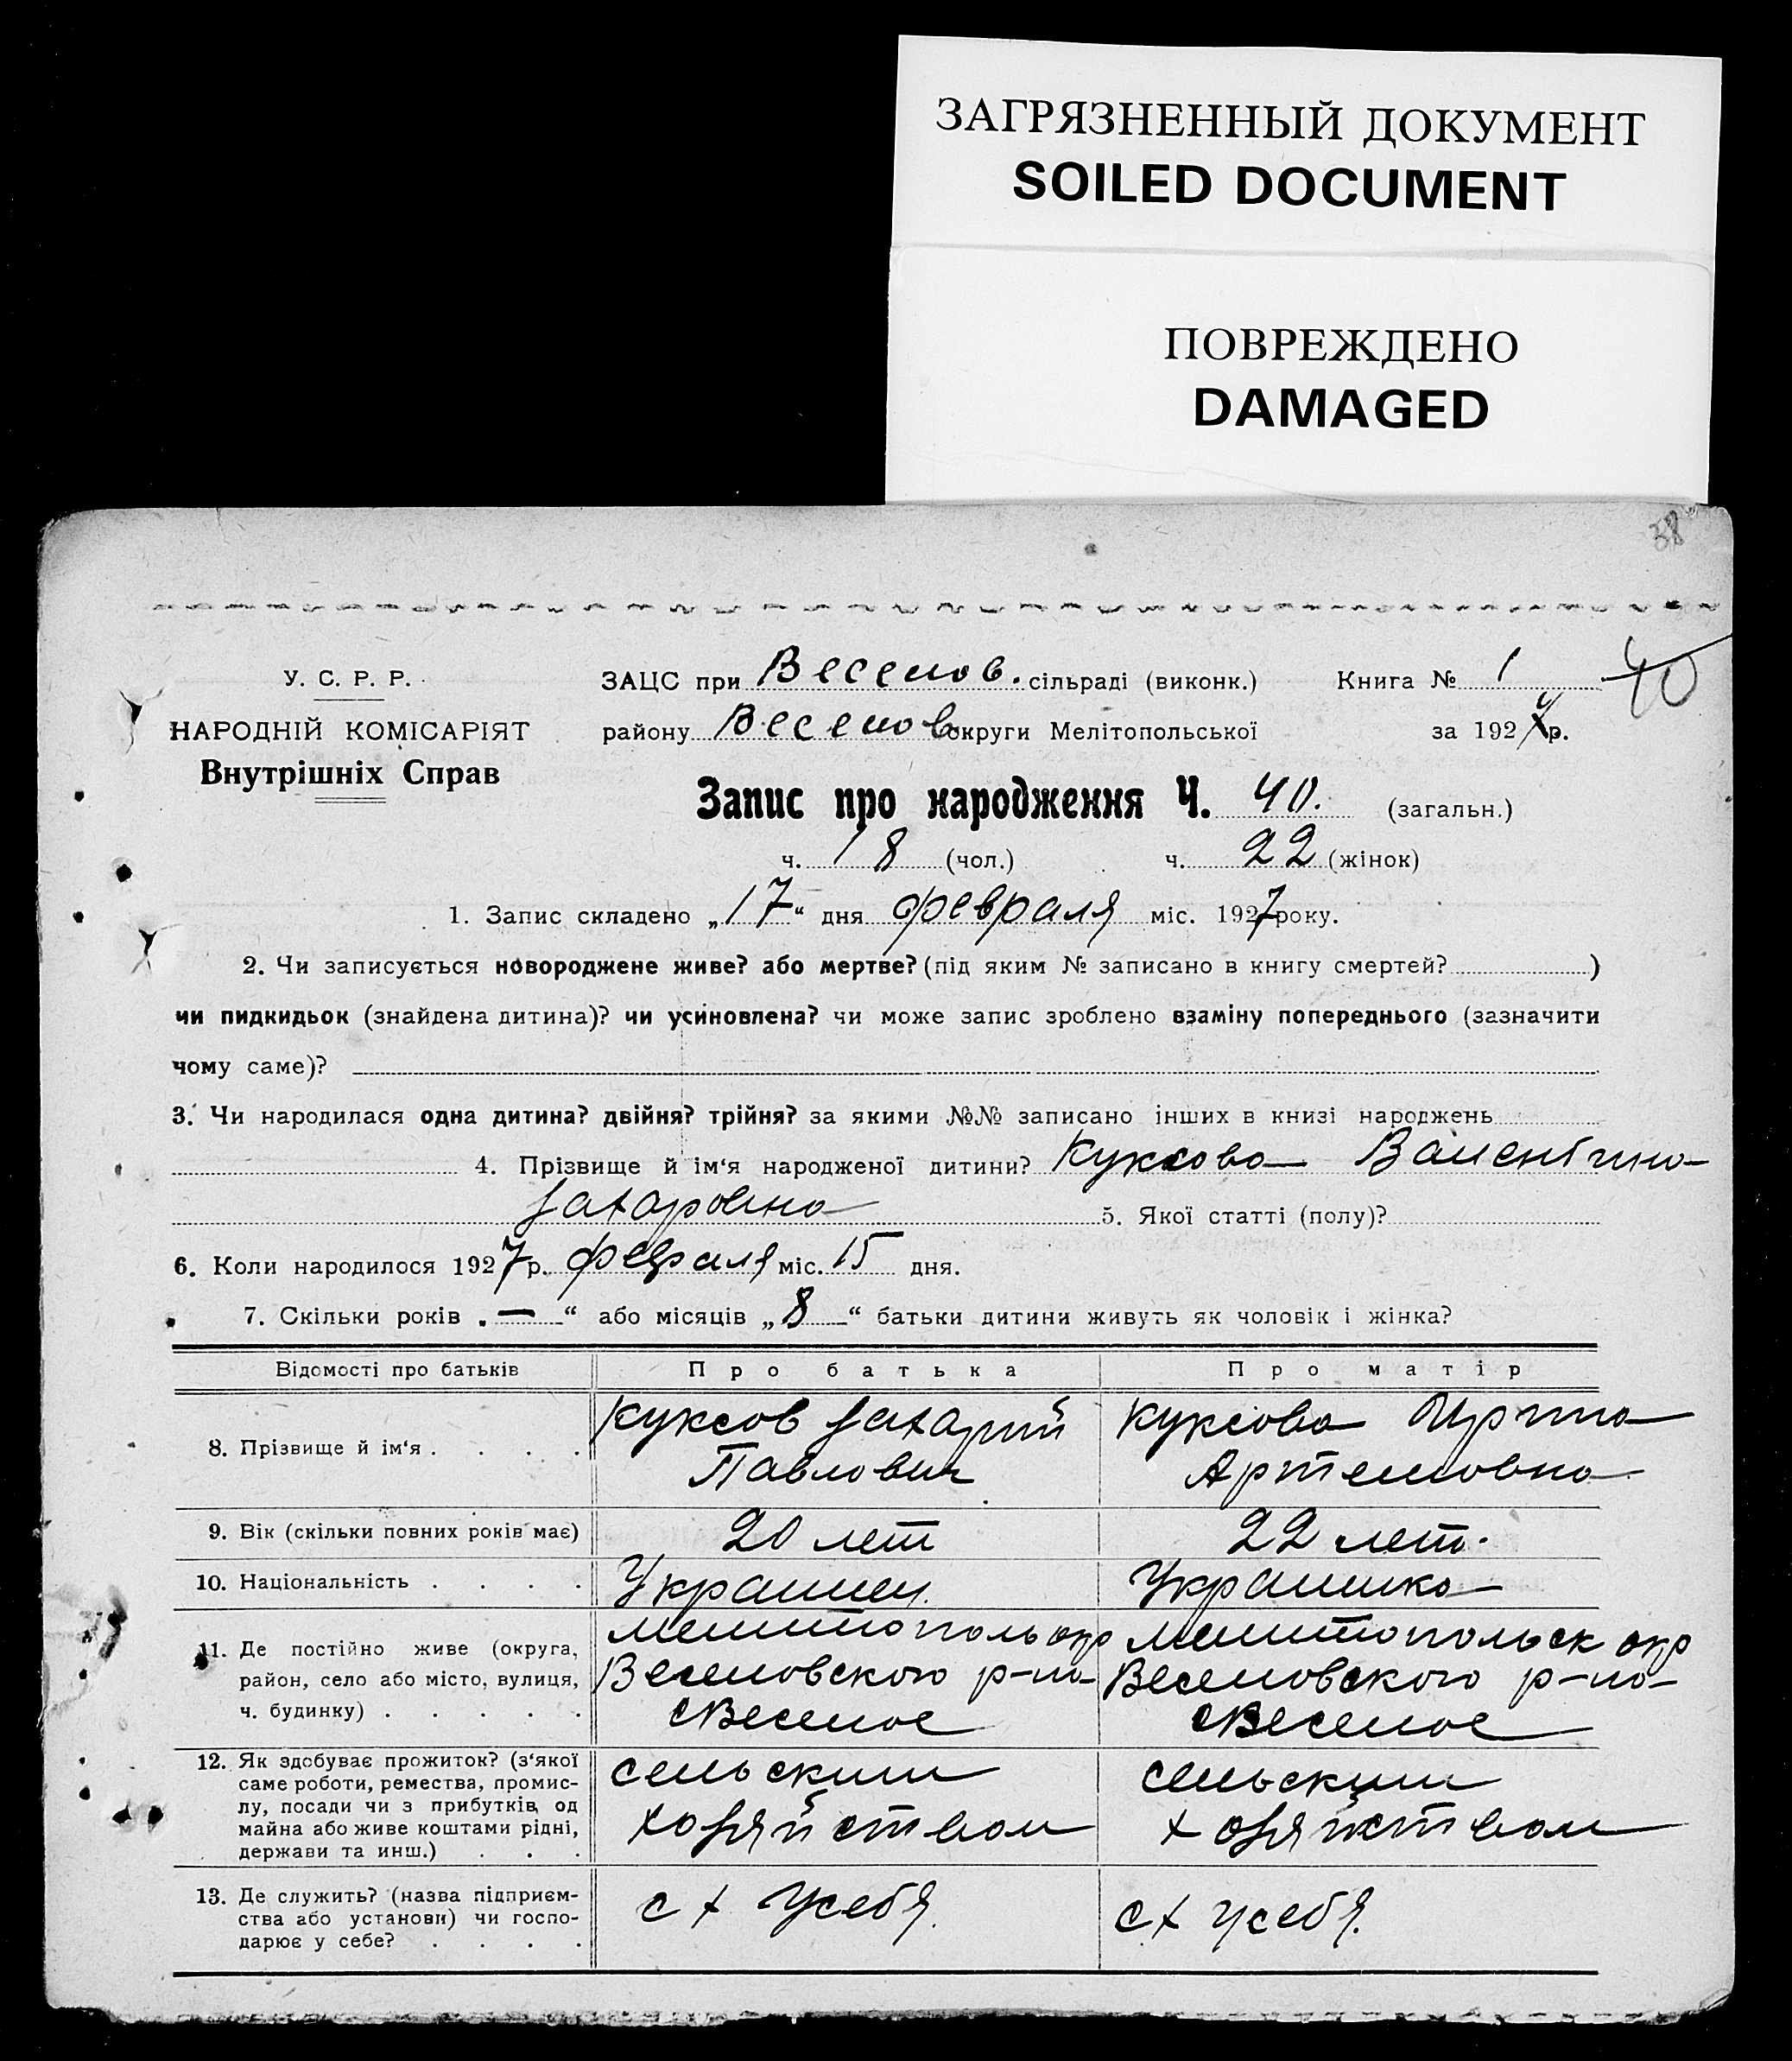 ЗАГРЯЗНЕННЫЙ ДОКУМЕНТ
SOILED DOCUMENT
ПОВРЕЖДЕНО
DAMAGED
38
У. С. Р. Р.
НАРОДНІЙ КОМІСАРІЯТ
Внутрішніх Справ
ЗАЦС при Веселов. сільраді (виконк.) Книга № 1 40
району Веселов округи Мелітопольської за 192 р.
Запис про народження Ч. 40. (загальн.)
ч. 18 (чол.) ч. 22 (жінок)
1. Запис складено „17“ дня февраля міс. 1927 року.
2. Чи записується новороджене живе? або мертве? (під яким № записано в книгу смертей? )
чи пидкидьок (знайдена дитина)? чи усиновлена? чи може запис зроблено взаміну попереднього (зазначити
чому саме)?
3. Чи народилася одна дитина? двійня? трійня? за якими №№ записано інших в книзі народжень
4. Прізвище й ім‘я народженої дитини? Куксова Валентина
Захаровна 5. Якої статті (полу)?
6. Коли народилося 1927 р. февраля міс. 15 дня.
7. Скільки років „—“ або місяців „8“ батьки дитини живуть як чоловік і жінка?
Відомості про батьків Про батька Про матір
8. Прізвище й ім‘я . . . . Куксов Захарий Павлович Куксова Ирина Артемовна
9. Вік (скільки повних років має) 20 лет 22 лет.
10. Національність . . . . Украинец. Украинка
11. Де постійно живе (округа, Мелитополь окр Мелитопольск окр
район, село або місто, вулиця, Веселовского р-на Веселовского р-на
ч. будинку) . . . . . с Веселое с Веселое
12. Як здобуває прожиток? (з‘якої сельским сельским
саме роботи, ремества, промис-
лу, посади чи з прибутків, од хозяйством хозяйством
майна або живе коштами рідні,
держави та инш.) . . .
13. Де служить? (назва підприєм- с х у себя. с.х у себя.
ства або установи) чи госпо-
дарює у себе? . . . .